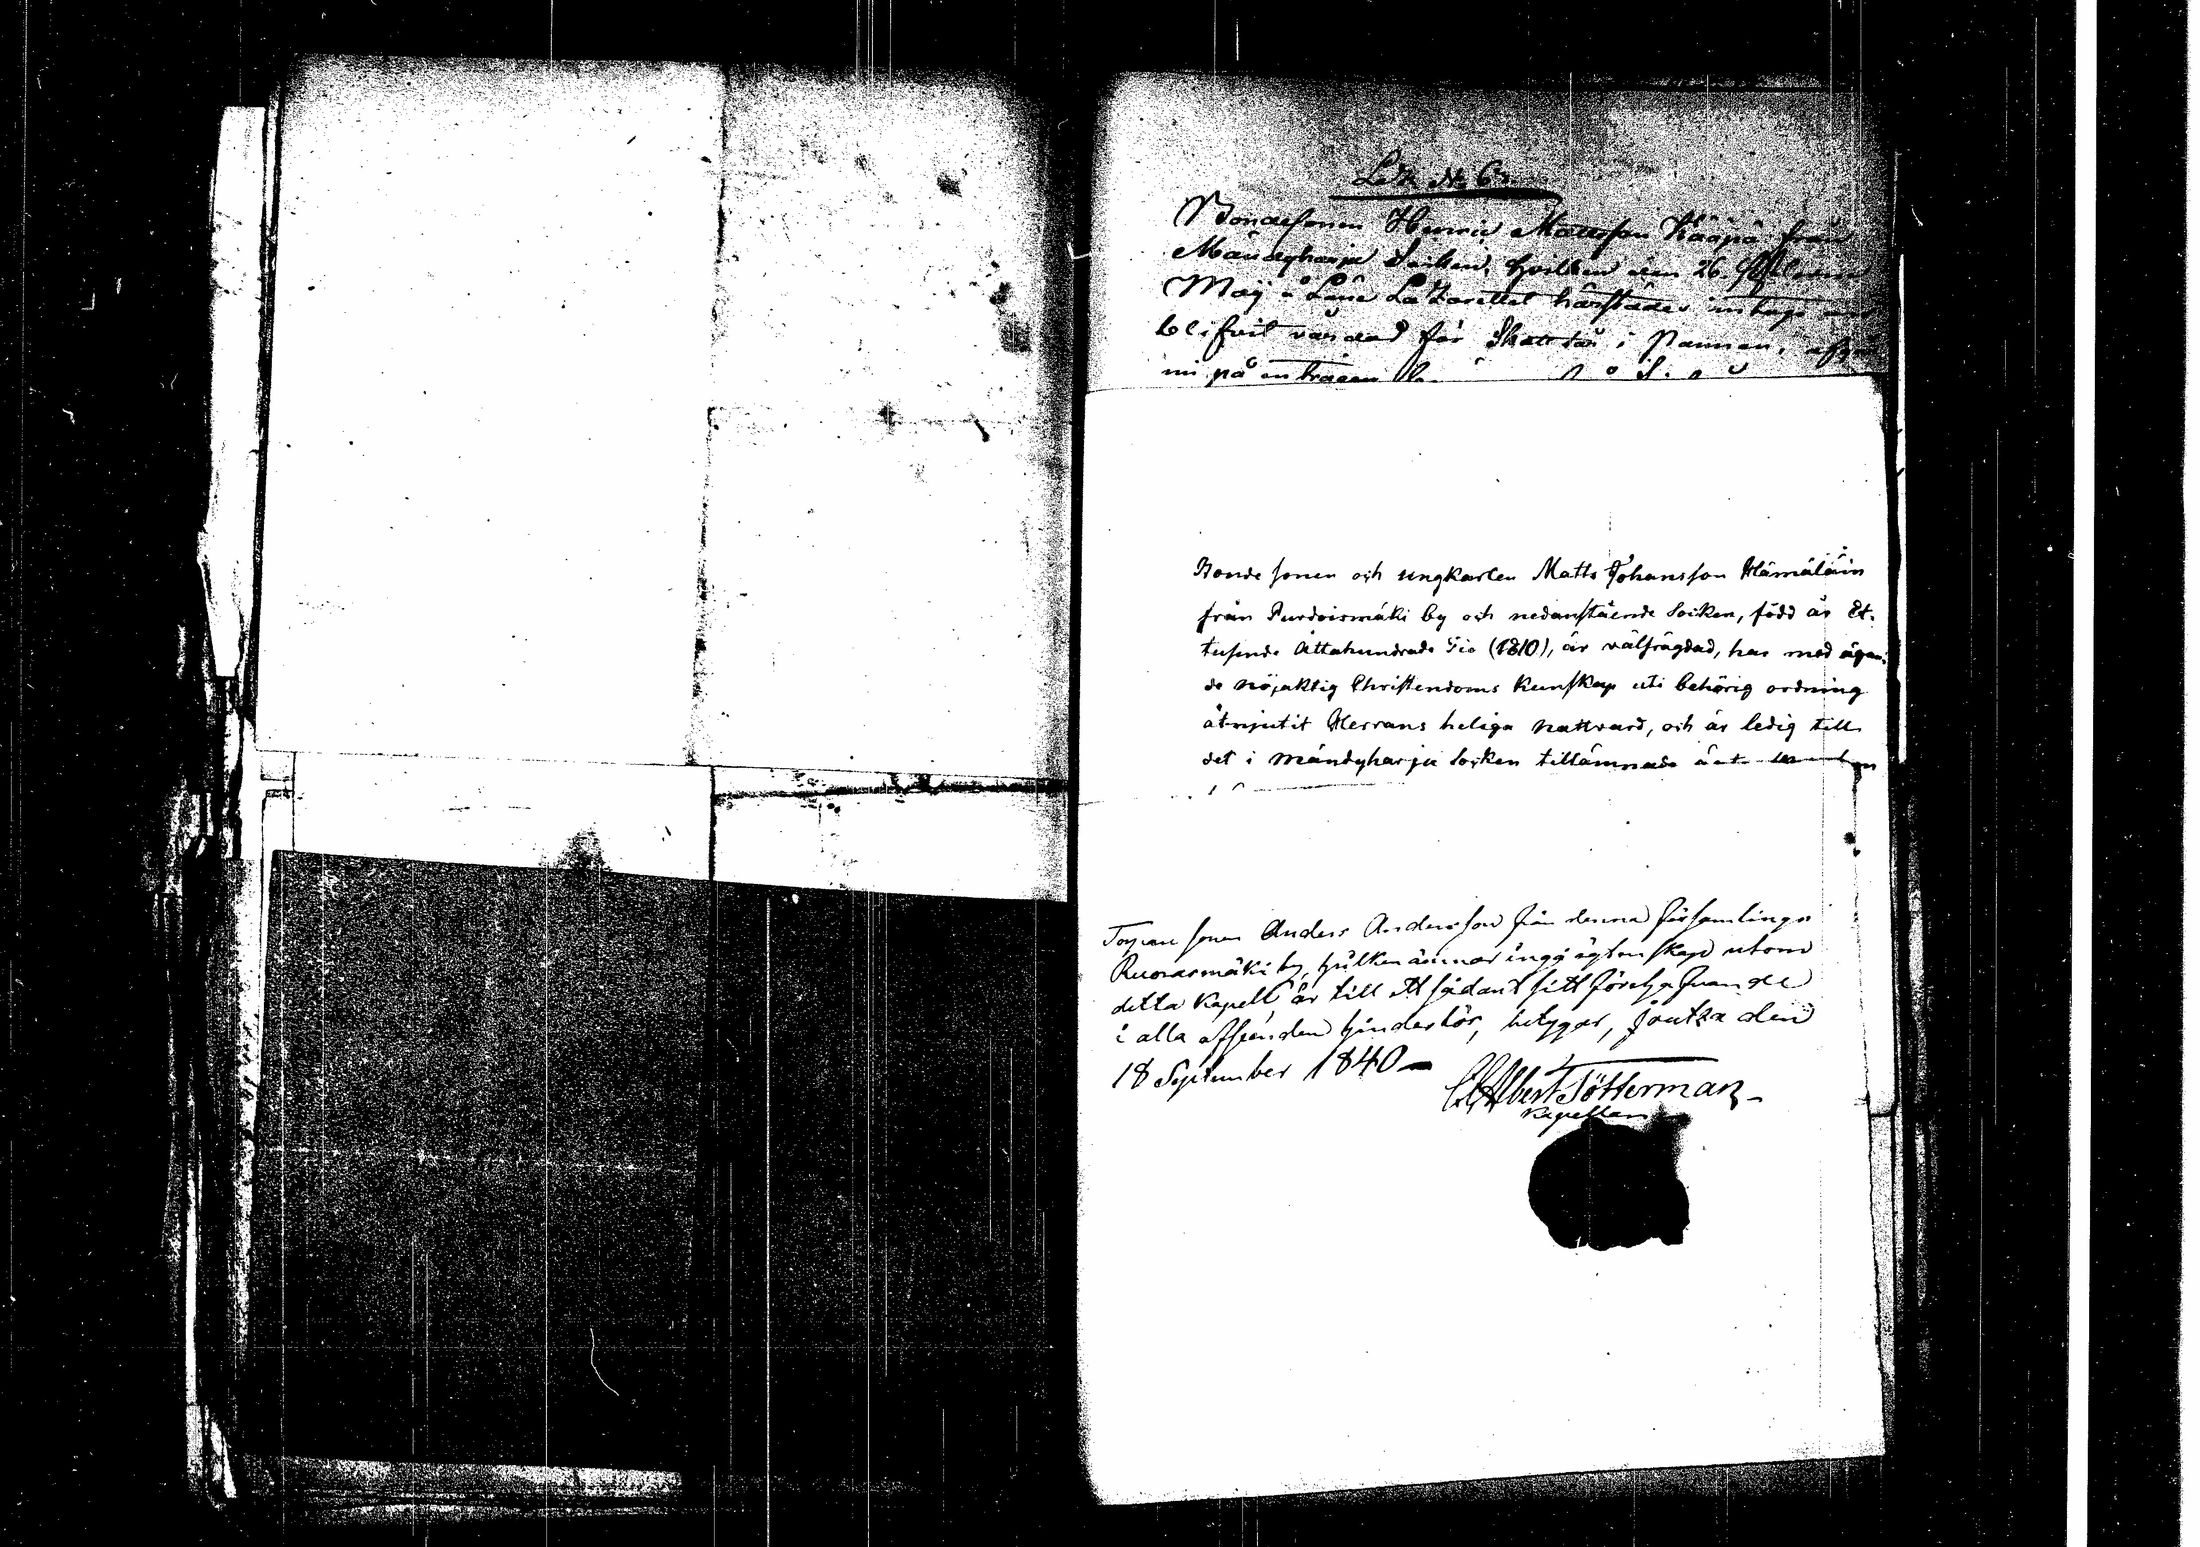 Litt N: 6
Bondesonen Henric Mattsson Kääpä från
Mändyharju Socken, hvilken den 26.
Maij å Läne Lazarettet härstädes intagen
blifvit vårdad för i Pannan,
mi på enträgen
Bonde sonen och ungkarlen Matts Johansson Hämäläin
från Purdoismäki by och nedanstående Socken, född år Et-
tusende Åttahundrade Tio (1810), är välfrägdad, har med ägan-
de nöjaktig Christendoms kunskap uti behörig ordning
åtnjutit Herrans heliga nattvard, och är ledig till
det i Mändyharju Socken tillämnade
Torpare sonen Anders Andersson från denna församlings
Ruorasmäki by, hvilken ämnar ingå ägtenskap utom
detta Kapell, är till ett sådant sitt förehafvande
i alla afseenden hinderlös, betygar, Joutza den
18 September 1840 —
C. Albert Tötterman
Kapellan